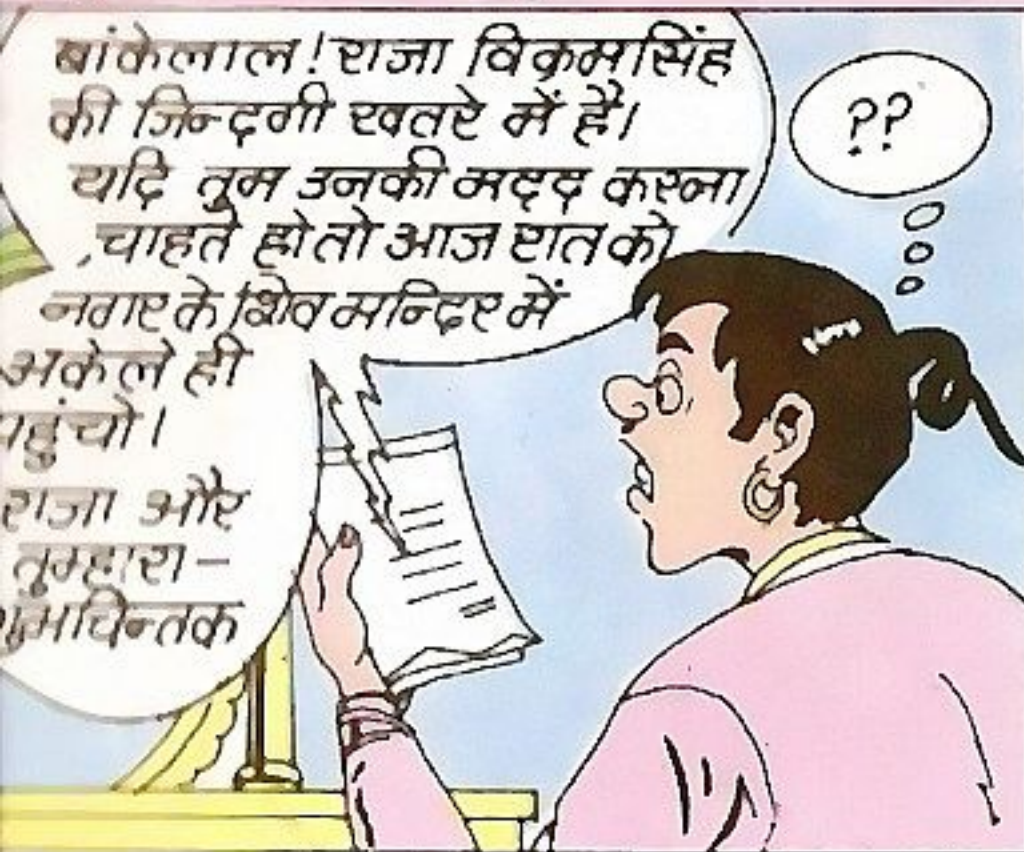 बांकेलाल! राजा विक्रमसिंह
की जिन्दगी खतरे में है।
यदि तुम उनकी मदद करना
चाहते हो तो आज रात को
नगर के शिव मन्दिर में
अकेले ही
पहुंचो।
राजा और
तुम्हारा –
शुभचिन्तक
??